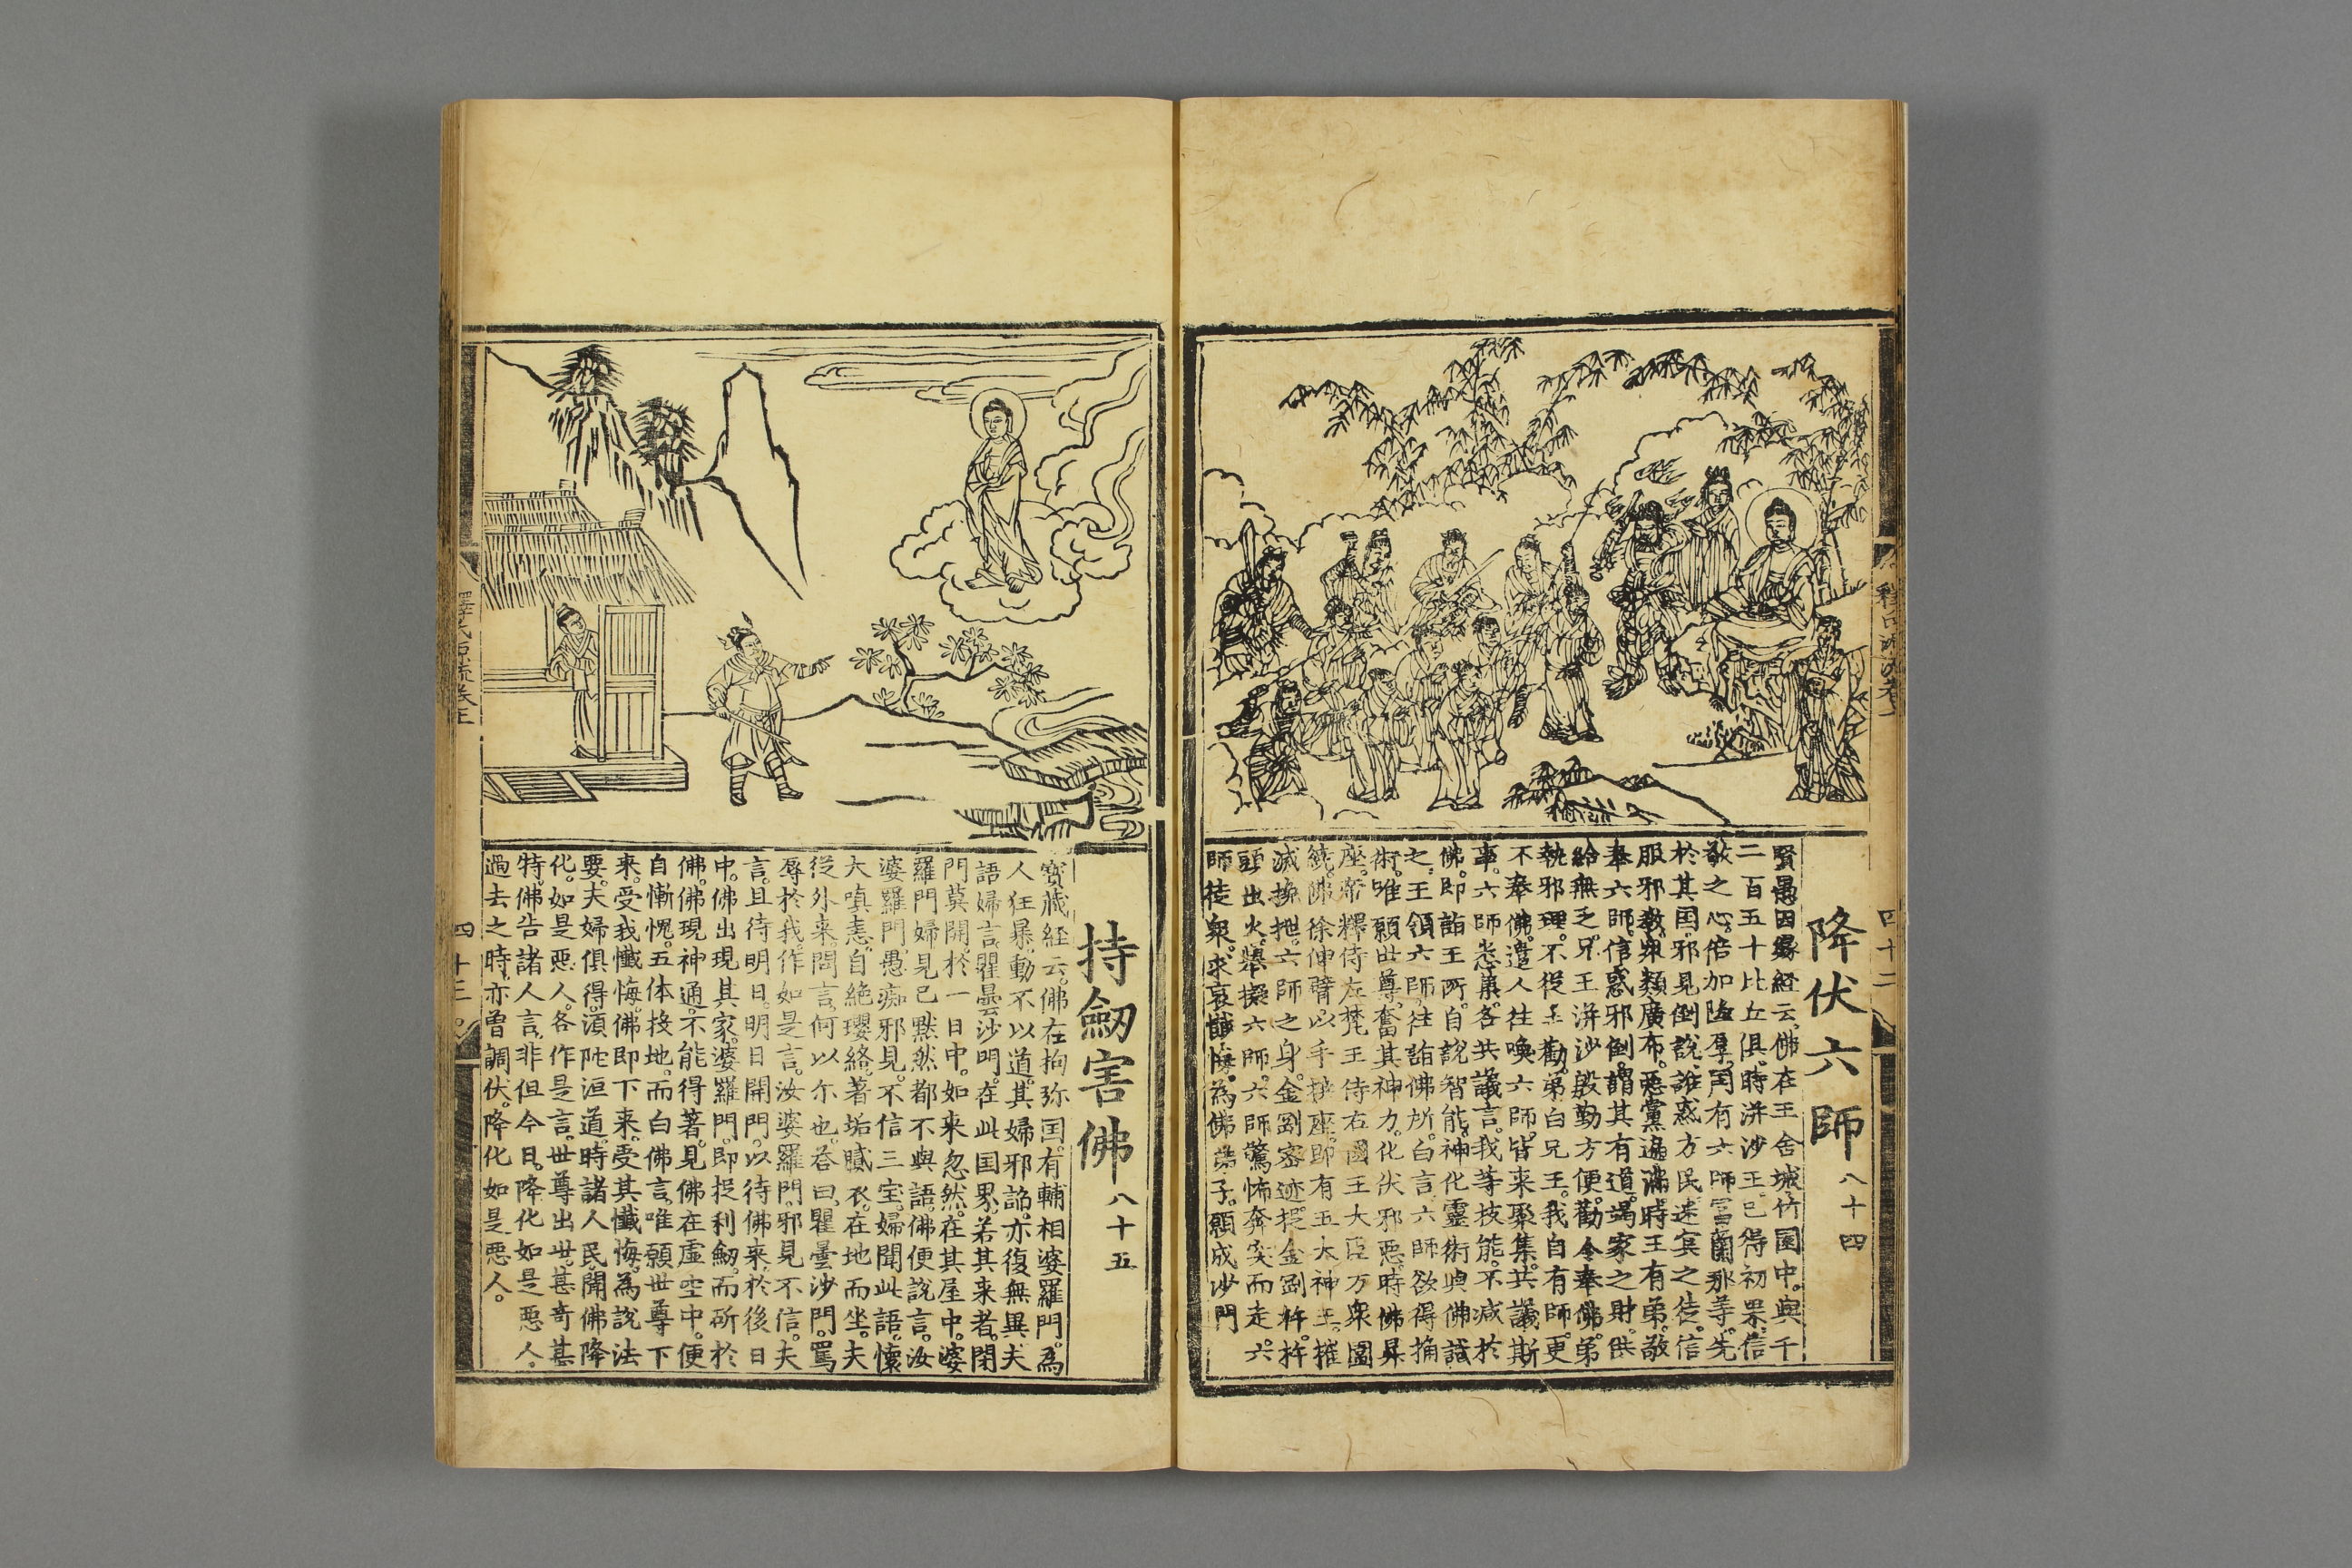 降伏六師 八十四
賢愚因縁経云。佛在王舍城竹園中。與千
二百五十比丘俱。時洴沙王。已得初果。信
敬之心。倍加隆厚。国有六師富蘭那等。先
於其国。邪見倒說。誑惑方民。迷冥之徒。信
服邪教。衆類廣布。惡黨遍滿。時王有弟。敬
奉六師。信惑邪倒。謂其有道。竭家之財。供
給無乏。兄王洴沙。殷勤方便。勸令奉佛。弟
執邪理。不從王勸。弟白兄王。我自有師。更
不奉佛。遣人往喚六師。皆来聚集。共議斯
事。六師悉集。各共議言。我等技能。不減於
佛。即詣王所。自說智能。神化靈術。與佛試
之。王領六師。往詣佛所。白言。六師欲得捔
術。唯願世尊。奮其神力。化伏邪惡。時佛昇
座。帝釋侍左。梵王侍右。國王大臣万衆圍
繞。佛徐伸臂。以手按座。即有五大神王。摧
滅挽拽。六師之身。金剛密迹。捉金剛杵。杵
頭出火。舉擬六師。六師驚怖奔突而走。六
師徒衆。求哀懺悔。為佛弟子。願成沙門
四十二
持劒害佛 八十五
寶藏経云。佛在拘弥国。有輔相婆羅門。為
人狂暴。動不以道。其婦邪諂。亦復無異。夫
語婦言。瞿曇沙門。在此国界。若其来者。閉
門莫開。於一日中。如来忽然。在其屋中。婆
羅門婦見已默然。都不與語。佛便說言。汝
婆羅門。愚痴邪見。不信三宝。婦聞此語。懷
大嗔恚。自絶瓔絡。著垢膩衣。在地而坐。夫
從外来。問言。何以尔也。荅曰。瞿曇沙門。罵
辱於我。作如是言。汝婆羅門。邪見不信。夫
言。且待明日。明日開門。以待佛来。於後日
中。佛出現其家。婆羅門。即捉利劒。而斫於
佛。佛現神通。不能得著。見佛在虛空中。便
自慚愧。五体投地。而白佛言。唯願世尊下
来。受我懺悔。佛即下来。受其懺悔。為說法
要。夫婦俱得須陀洹道。時諸人民。聞佛降
化。如是惡人。各作是言。世尊出世。甚奇甚
特。佛告諸人言。非但今日。降化如是惡人。
過去之時。亦曽調伏。降化如是惡人。
四十三